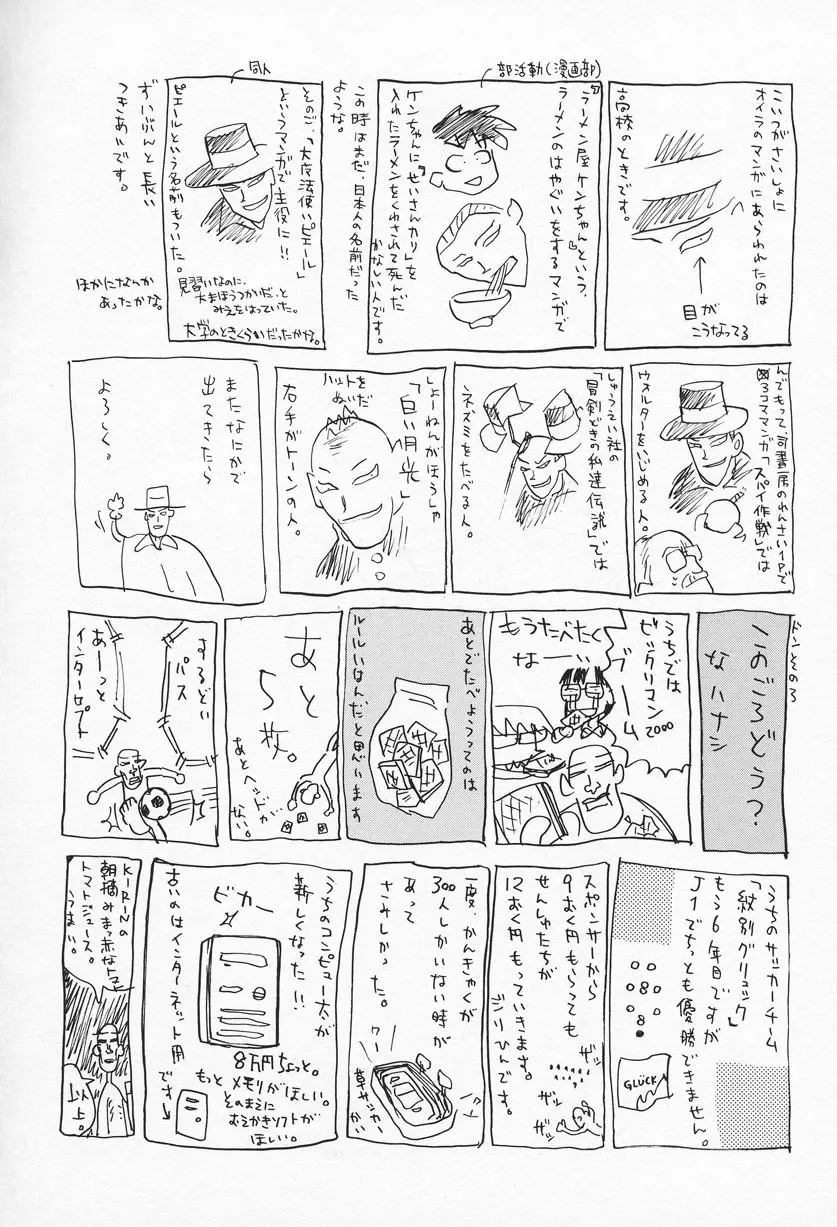 こいつがさいしょに
オイラのマンガにあらわれたのは
高校のときです。
目が
こうなってる
部活動(漫画部)
「ラーメン屋ケンちゃん」という、
ラーメンのはやぐいをするマンガで
ケンちゃんに『せいさんカリ』を
入れたラーメンをくわされて死んだ
かなしい人です。
この時はまだ、日本人の名前だった
ような。
同人
そのご、「大魔法使いピエール」
というマンガで主役に!!
ピエールという名前もついた。
見習いなのに、
大まほうつかいだ、と
みえをはっていた。
大学のときくらいだったかな。
ずいぶんと長い
つきあいです。
ほかになんか
あったかな。
んでもって、司書房のれんさい1Pで
3コママンガ「スパイ作戦」では
ウォルターをいじめる人。
しゅうえい社の
「冒剣どきの私達伝説」では
ネズミをたべる人。
しょーねんがほうしゃ
「白い月光」
ハットを
ぬいだ
右手がトーンの人。
またなにかで
出てきたら
よろしく。
ドンそのろ
このごろどう?
なハナシ
うちでは
ビックリマン
2000
ブーム
もうたべたく
なーい
あとでたべようってのは
ルールいはんだと思います
あと
5枚。
あとヘッドが
ない。
するどい
パス
あーっと
インターセプト
うちのサッカーチーム
「紋別グリュック」
もう6年目ですが
J1でちっとも優勝できません。
GLÜCK
スポンサーから
9おく円もらっても
せんしゅたちが
12おく円もっていきます。
ヨリひんです。
ザッ
ザッ
ザッ
一度、かんきゃくが
300人しかいない時が
あって
さみしかった。
ワー
ワー
草サッカー
かい
うちのコンピュー太が
新しくなった!!
ピカー
8万円ちょっと。
もっとメモリがほしい。
そのまえに
おえかきソフトが
ほしい。
古いのはインターネット用
です→
KIRINの
朝摘みまっ赤なトマト
トマトジュース。
うまい。
以上。